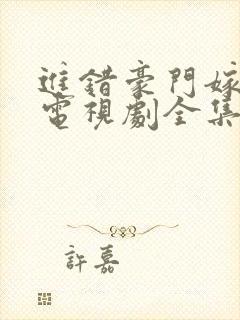 進錯豪門嫁
電視劇全集
許嘉